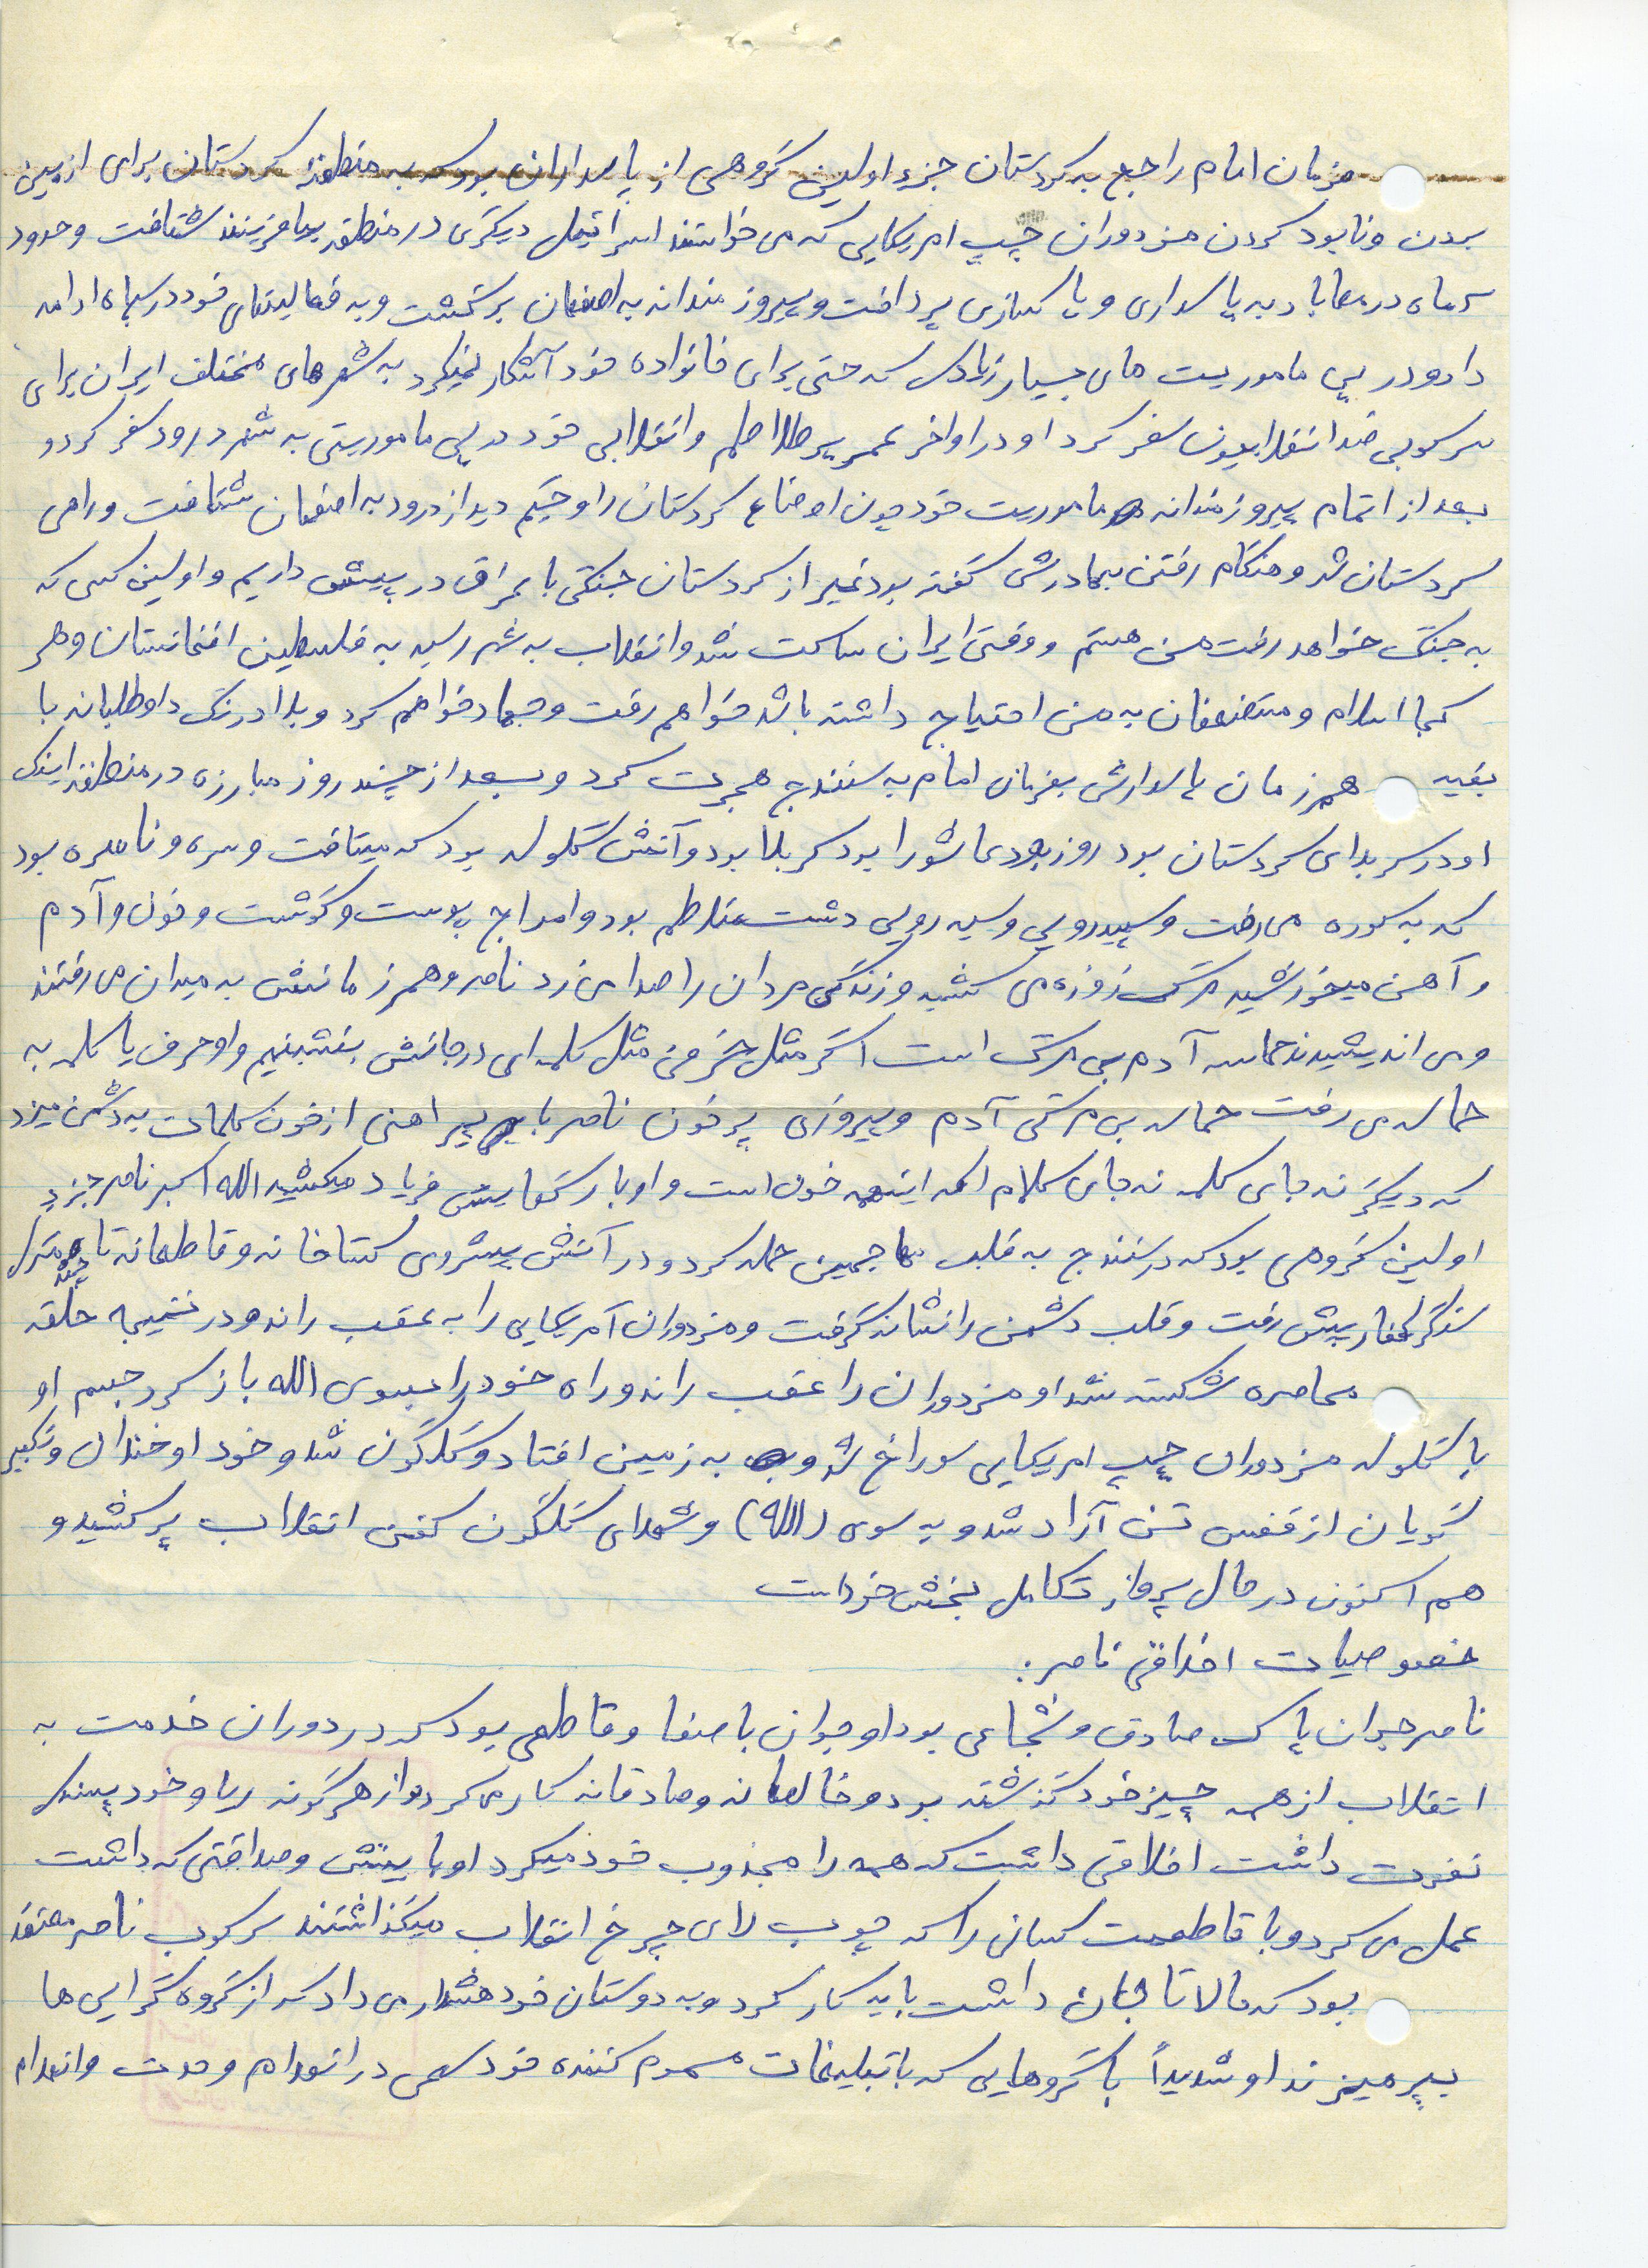 فرمان امام راجع به کردستان جزء اولین گروهی از پاسداران بود که به منطقه کردستان برای از بین
بردن و نابود کردن مزدوران چپ امریکایی که می خواستند اسرائیل دیگری در منطقه بیافرینند شتافت و حدود
۲ ماه در مهاباد به پاسداری و پاکسازی پرداخت و پیروزمندانه به اصفهان برگشت و به فعالیتهای خود در سپاه ادامه
داد و در پی ماموریت های بسیار زیادی که حتی برای خانواده خود آشکار نمیکرد به شهرهای مختلف ایران برای
سرکوبی ضد انقلابیون سفر کرد او در اواخر عمر پر تلاطم و انقلابی خود در پی ماموریتی به شهر درود سفر کرد و
بعد از اتمام پیروزمندانه ماموریت خود چون اوضاع کردستان را وخیم دید از درود به اصفهان شتافت و راهی
کردستان شد و هنگام رفتن بمادرش گفته بود غیر از کردستان جنگی با عراق در پیش داریم و اولین کسی که
به جنگ خواهد رفت من هستم و وقتی ایران ساکت شد و انقلاب به ثمر رسید به فلسطین افغانستان و هر
کجا اسلام و مستضعفان به من احتیاج داشته باشد خواهم رفت و جهاد خواهم کرد و بلادرنگ داوطلبانه با
بقیه همرزمان پاسدارش بفرمان امام به سنندج هجرت کرد و بعد از چند روز مبارزه در منطقه اینک
او در کربلای کردستان بود روز عاشورا بود کربلا بود و آتش گلوله بود که میتافت و سره و ناسره بود
که به کوره می رفت و سپیدرویی و سیه رویی دشت متلاطم بود و امواج پوست و گوشت و خون و آدم
و آهن میخروشید مرگ زوزه می کشید و زندگی مردان را صدا می زد ناصر و همرزمانش به میدان می رفتند
و می اندیشیدند حماسه آدم بی مرگ است اگر مثل حرفی مثل کلمه ای در جانش بنشینیم و او حرف با کلمه به
حماسه می رفت حماسه بی مرگی آدم و پیروزی پر خون ناصر با پیراهنی از خون کلمات به دشمن میزد
که دیگر نه جای کلمه نه جای کلام اکه اینهمه خون است و او با رگهایش فریاد میکشید الله اکبر ناصر جزء
اولین گروهی بود که در سنندج به قلب مهاجمین حمله کرد و در آتش پیشروی گستاخانه و قاطعانه تا چند متری
سنگر کفار پیش رفت و قلب دشمن را نشانه گرفت و مزدوران آمریکایی را به عقب راند و در نتیجه حلقه
محاصره شکسته شد او مزدوران را عقب راند و راه خود را بسوی الله باز کرد جسم او
با گلوله مزدوران چپ امریکایی سوراخ شد و به زمین افتاد و گلگون شد و خود او خندان و تکبیر
گویان از قفس تن آزاد شد و به سوی (الله) و شهدای گلگون کفن انقلاب پر کشید و
هم اکنون در حال پرواز تکامل بخش خود است
خصوصیات اخلاقی ناصر:
ناصر جوان پاک صادق و شجاعی بود او جوان با صفا و قاطعی بود که در دوران خدمت به
انقلاب از همه چیز خود گذشته بود و خالصانه و صادقانه کار می کرد و از هر گونه ریا و خودپسندی
نفرت داشت اخلاقی داشت که همه را مجذوب خود میکرد او با بینش و صداقتی که داشت
عمل می کرد و با قاطعیت کسانی را که چوب لای چرخ انقلاب میگذاشتند سرکوب ناصر معتقد
بود که حالا تا جان داشت باید کار کرد و به دوستان خود هشدار می داد که از گروه گرایی ها
بپرهیزند او شدیداً با گروهایی که با تبلیغات مسموم کننده خود سعی در انهدام وحدت و انهدام